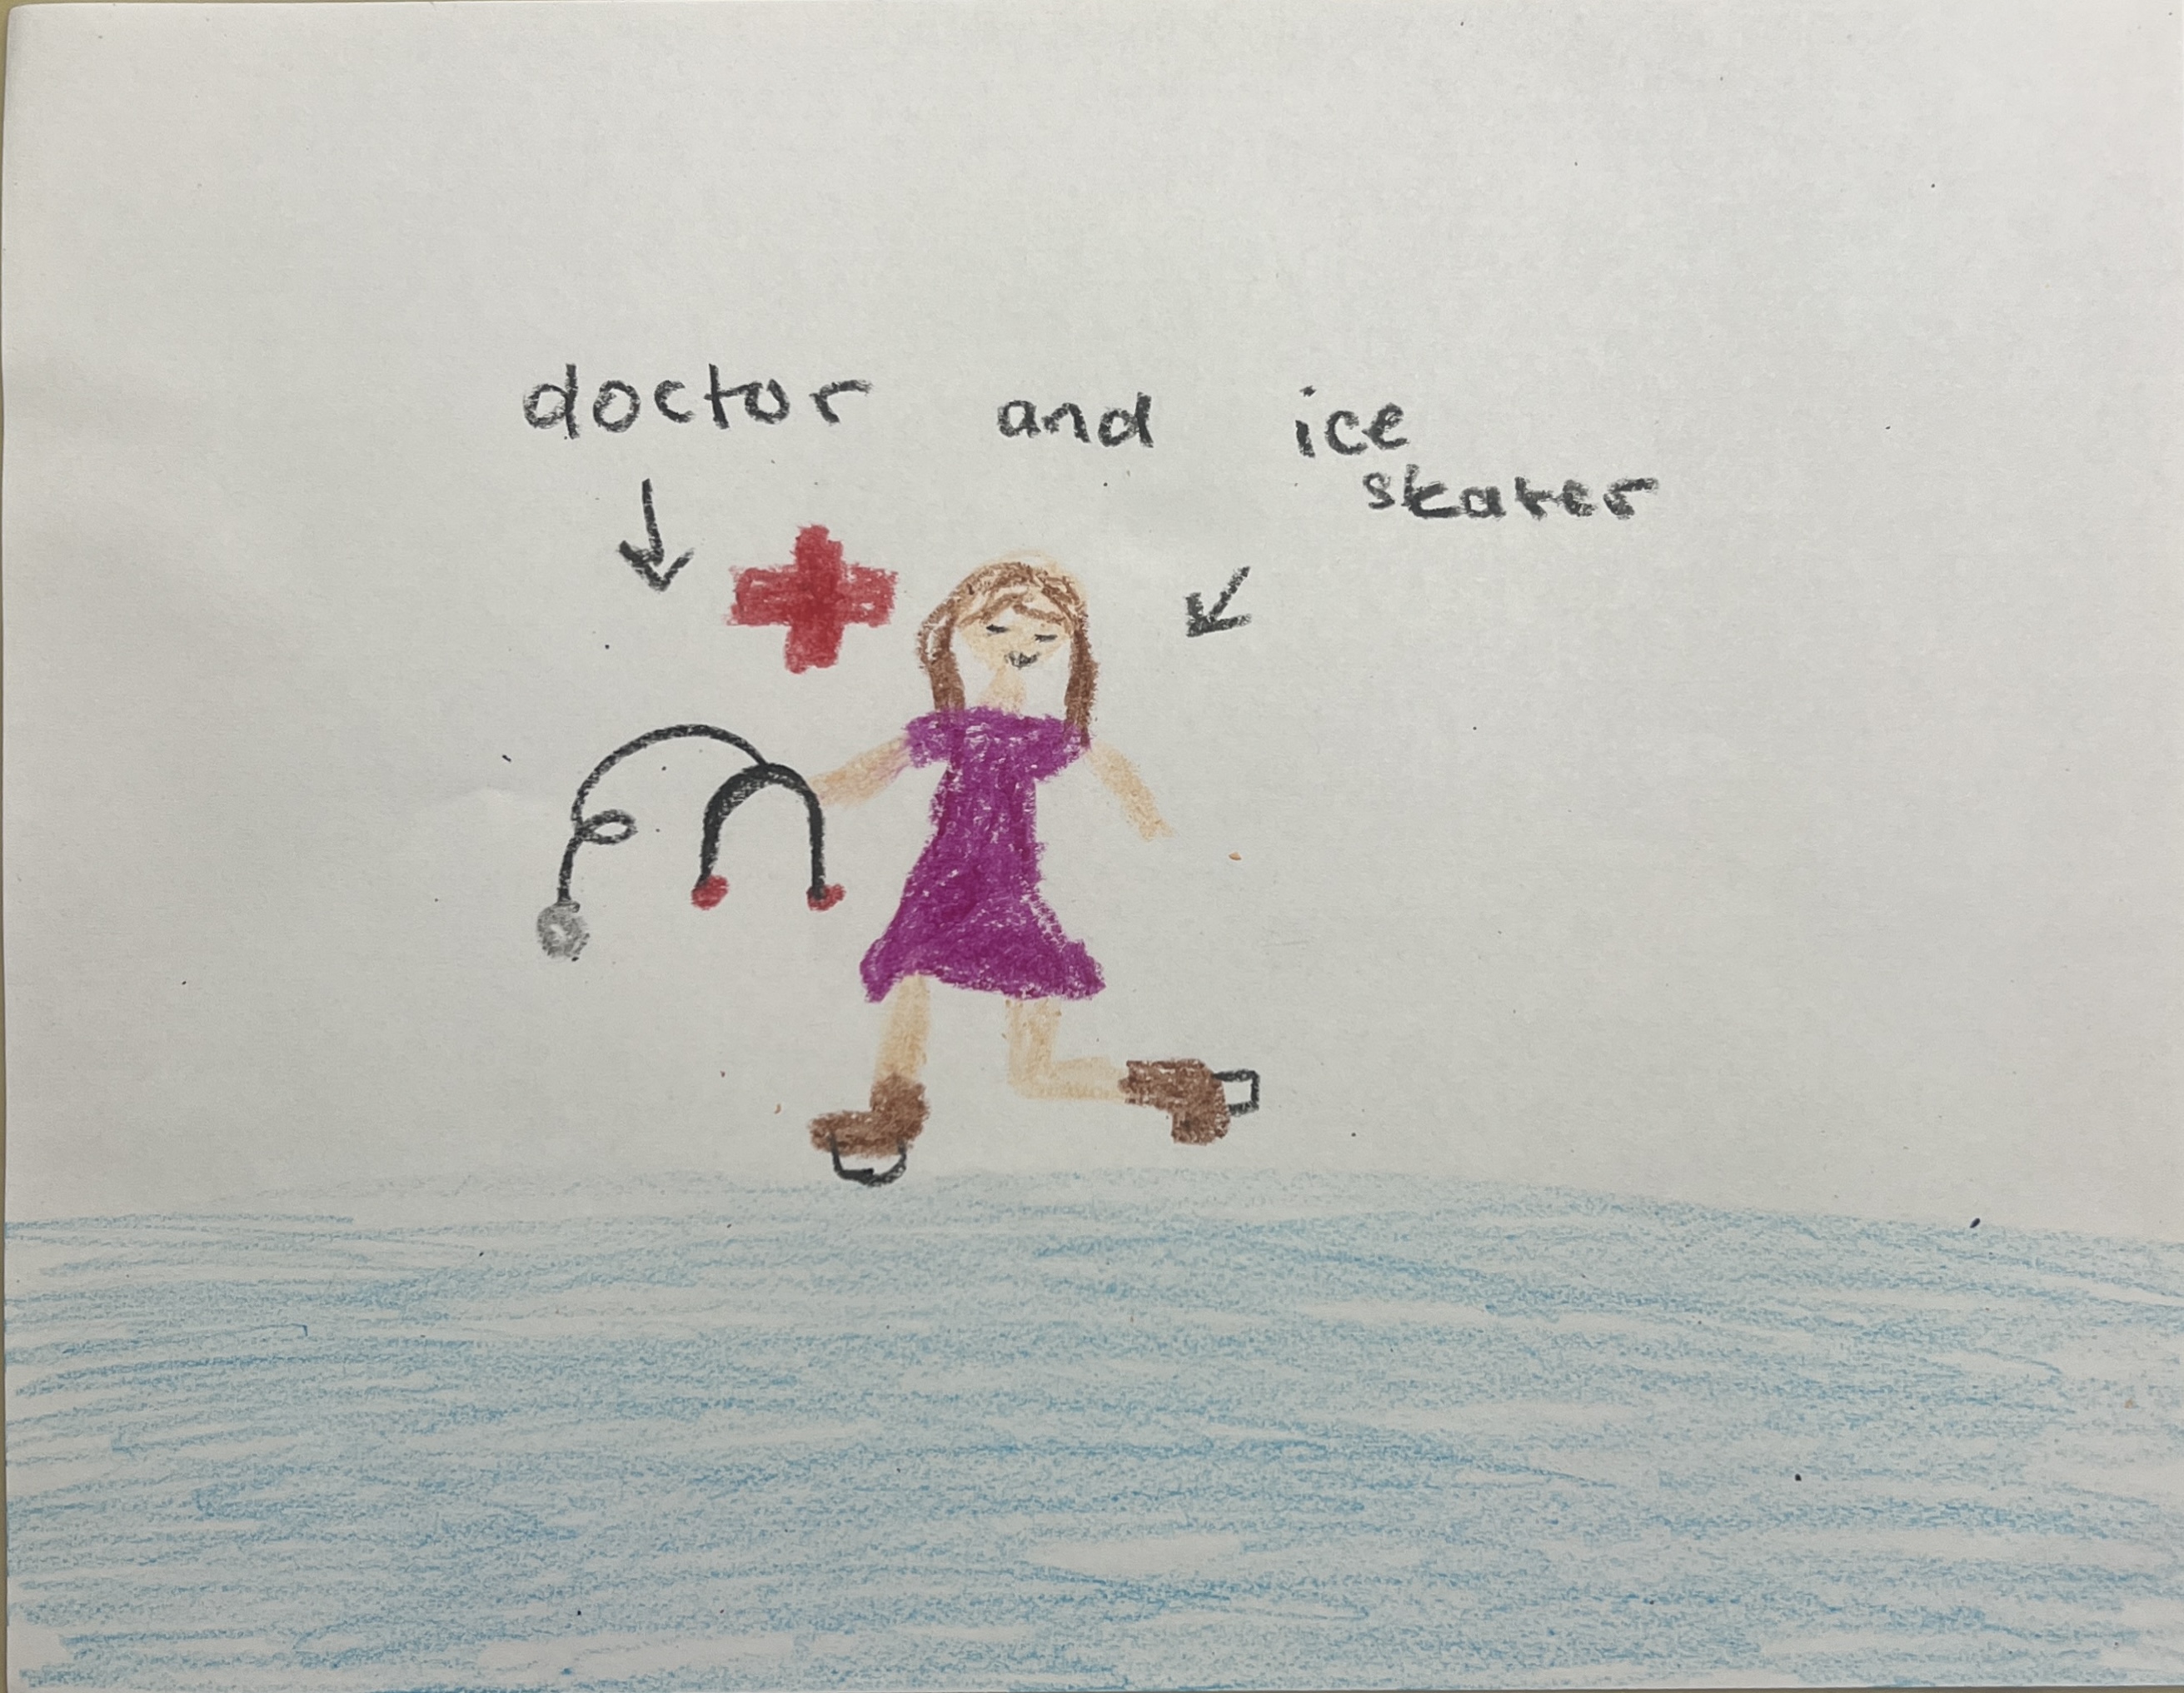 doctor and ice
skater